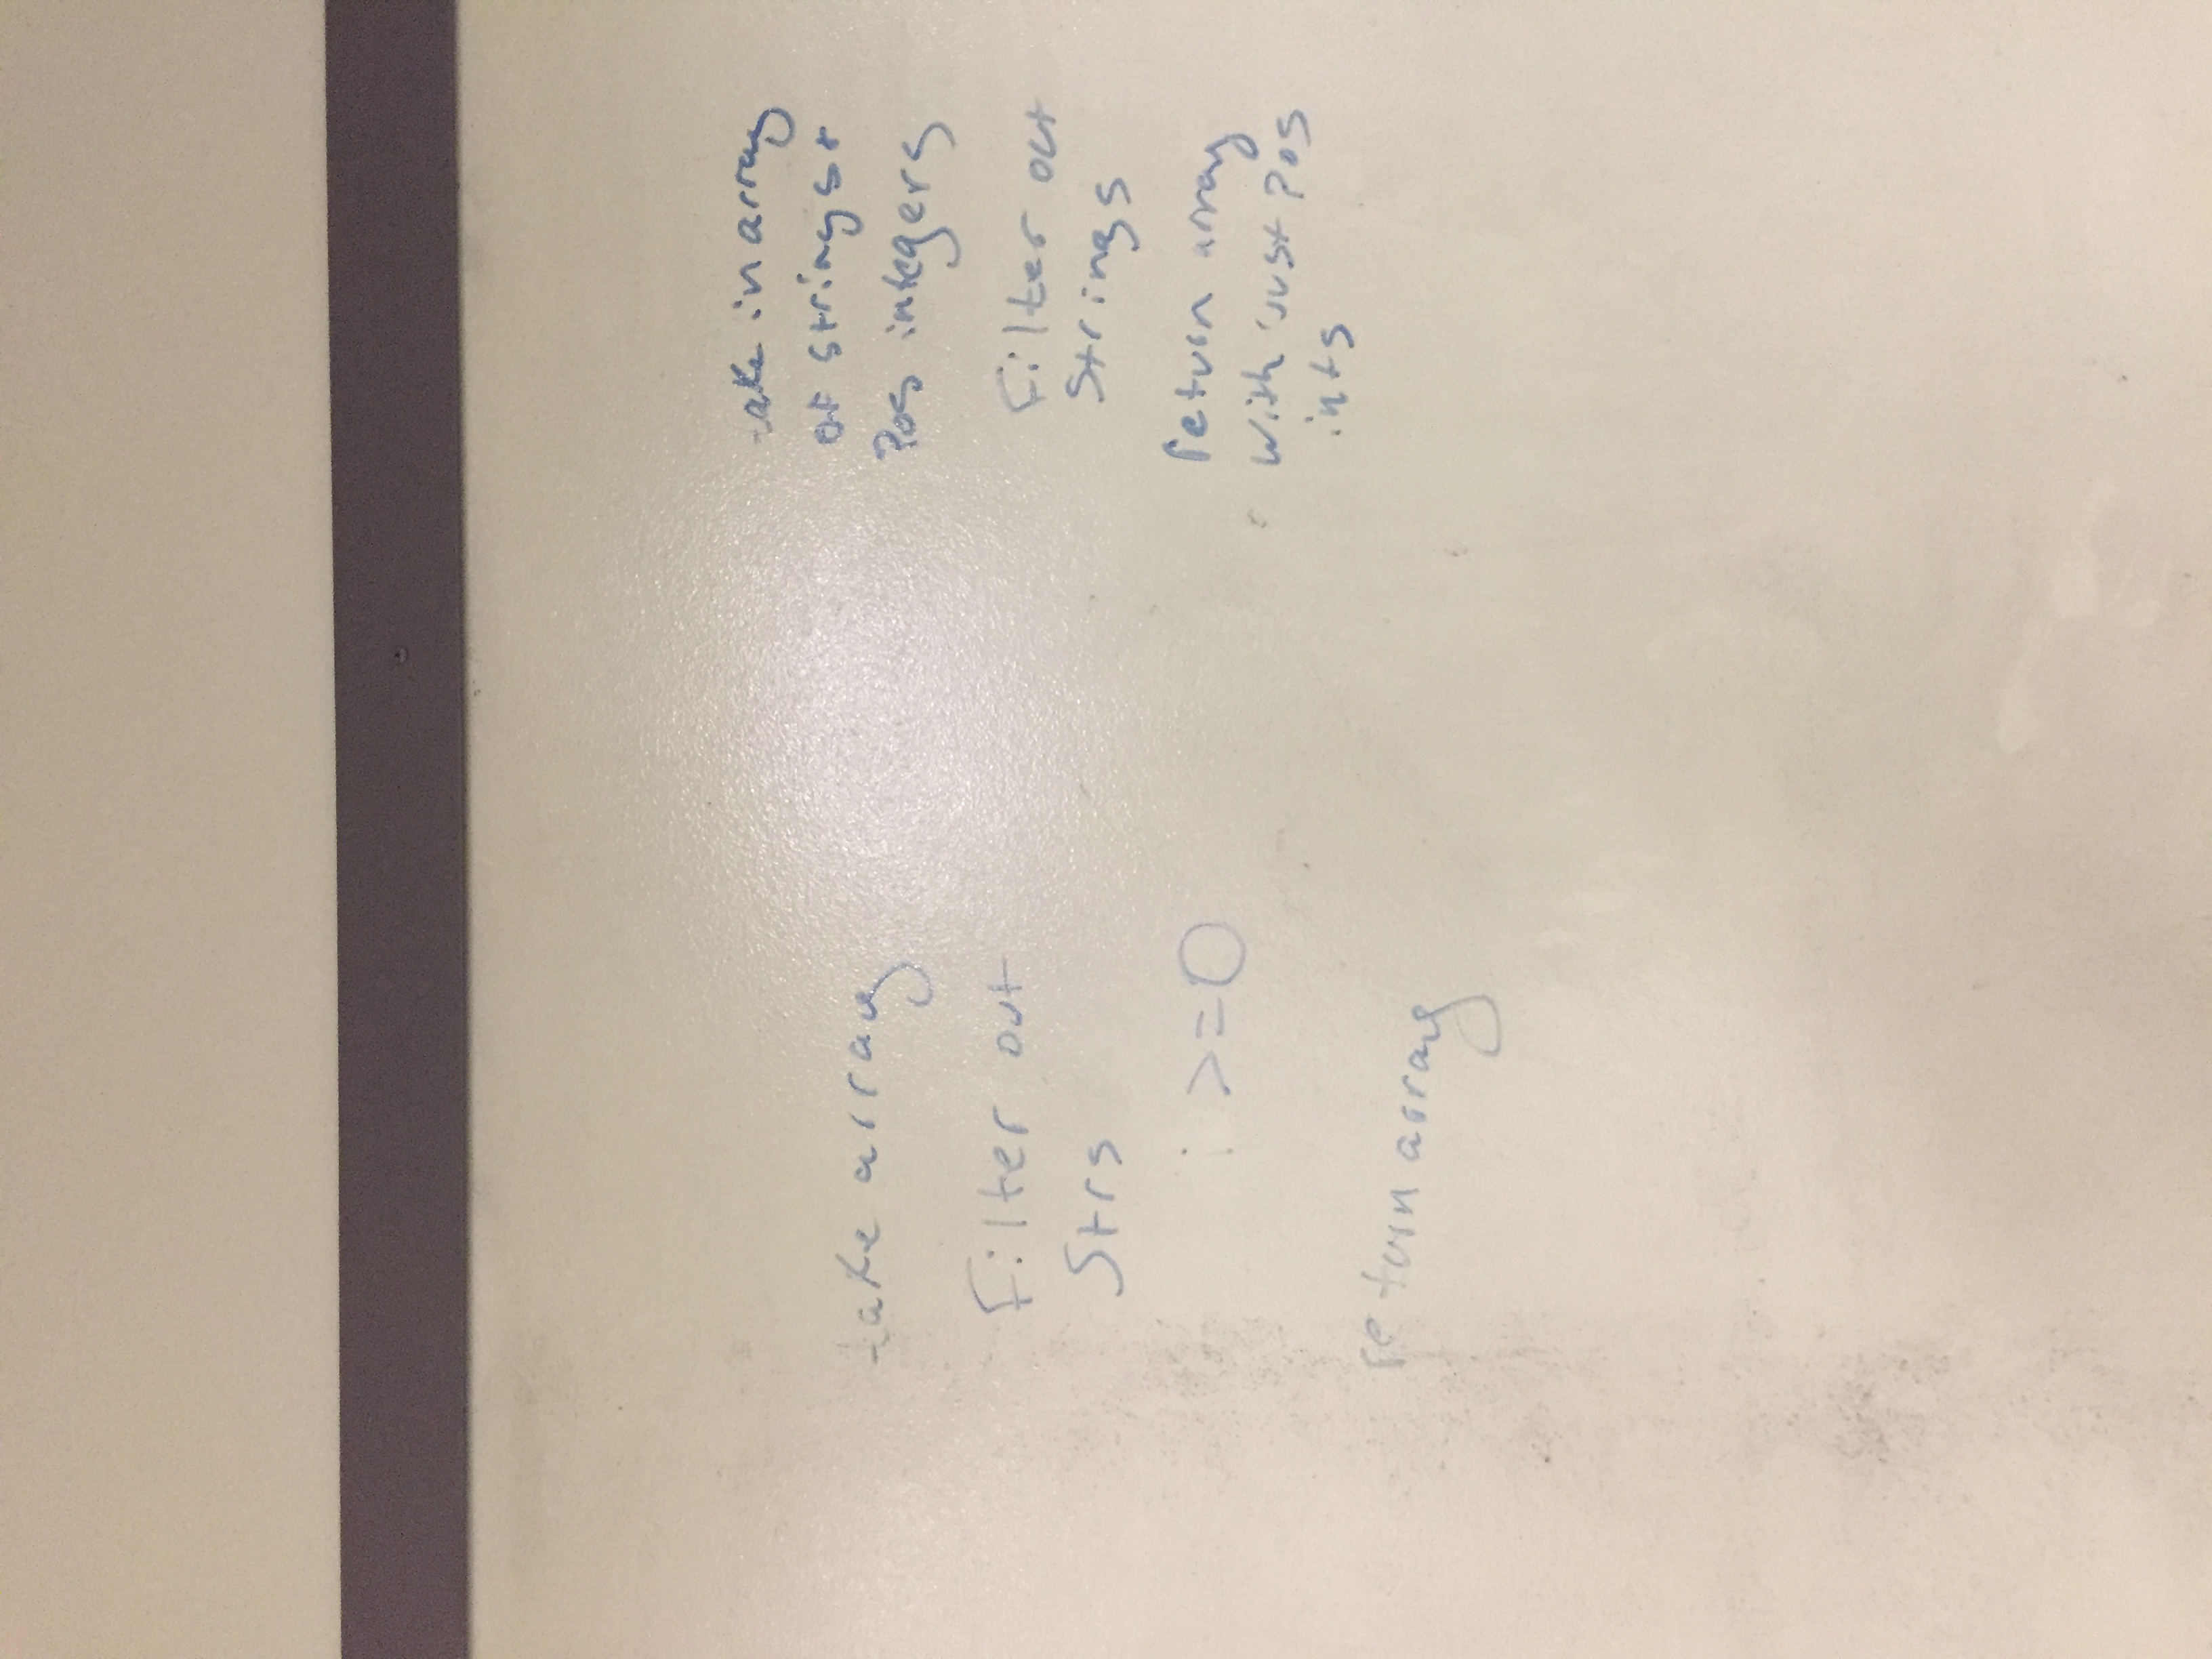 take array
Filter out
Strs
i >=0
return array
take in array
of strings +
Pos integers
Filter out
Strings
return array
with just Pos
ints